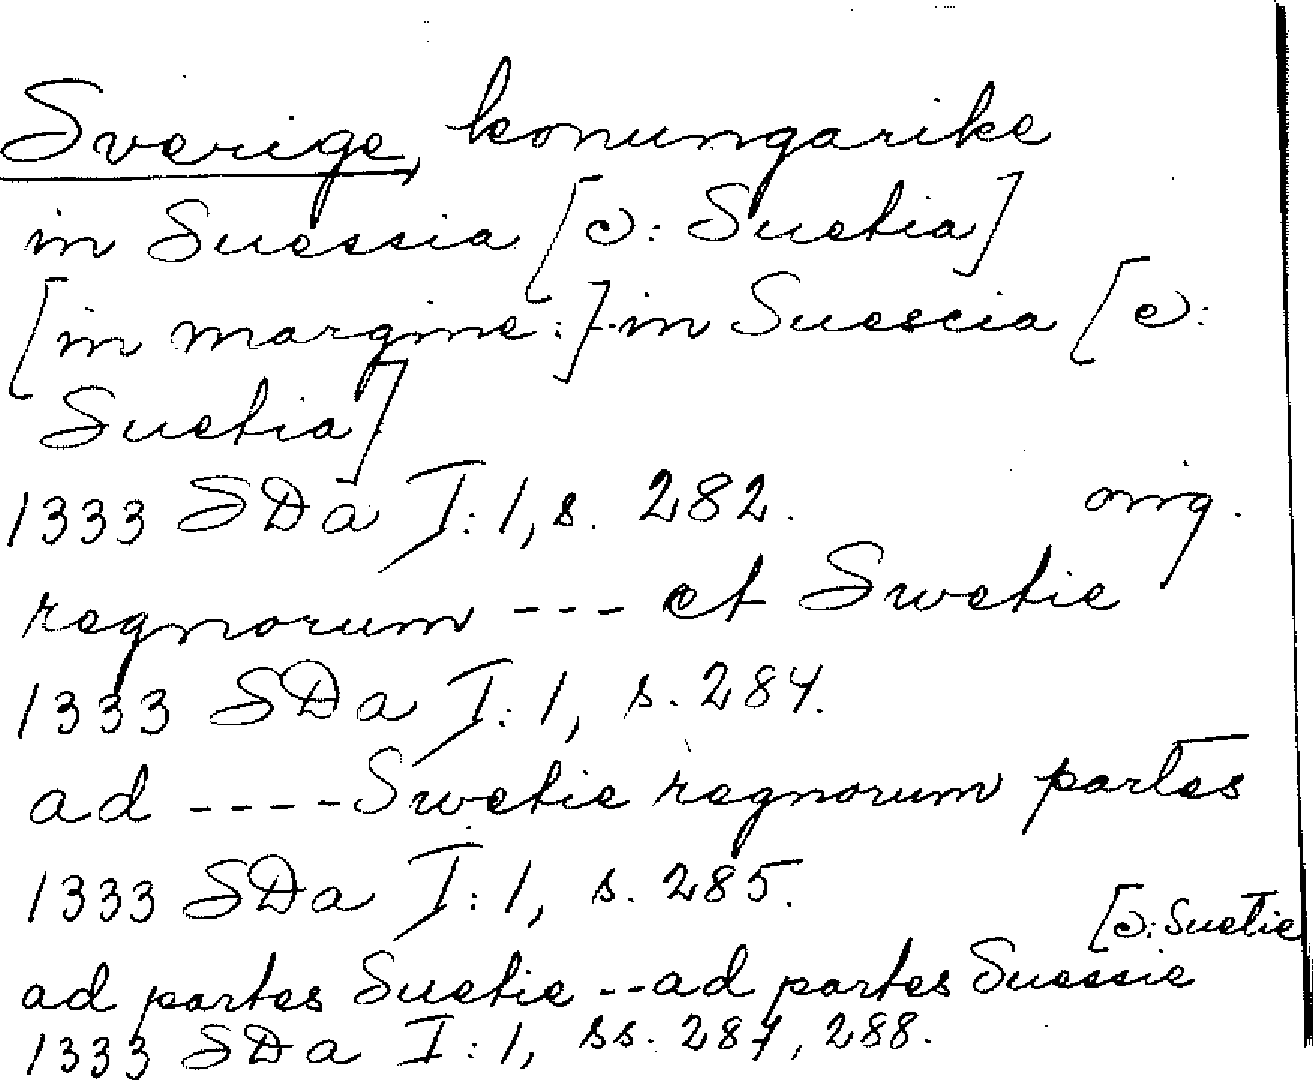 Sverige, konungarike
in Suessia [ɔ: Suetia]
[in margine:] in Suescia [ɔ:
Suetia]
1333 SDa I:1, s. 282. orig.
regnorum --- et Swetie
1333 SDa I:1, s. 284.
ad ---- Swetie regnorum partes
1333 SDa I:1, s. 285.
[ɔ: Suetie
ad partes Suetie -- ad partes Suessie
1333 SDa I:1, ss. 287, 288.